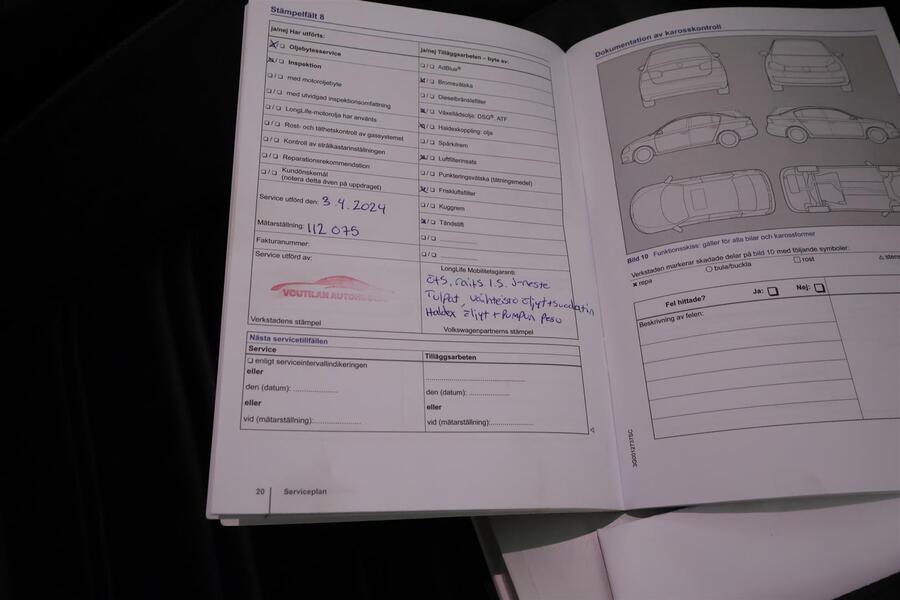 Stämpelfält 8
ja/nej Har utförts:
Oljebytesservice
Inspektion
med motoroljebyte
med utvidgad inspektionsomfattning
LongLife-motorolja har använts
Rost- och täthetskontroll av gassystemet
Kontroll av strålkastarinställningen
Reparationsrekommendation
Kundönskemål
(notera detta även på uppdraget)
Service utförd den: 3.4.2024
Mätarställning: 112 075
Fakturanummer:
Service utförd av:
VOUTILAN
Verkstadens stämpel
ja/nej Tilläggsarbeten – byte av:
AdBlue®
Bromsvätska
Dieselbränslefilter
Växellådsolja: DSG®, ATF
Haldexkoppling: olja
Spårkilrem
Luftfilterinsats
Punkteringsvätska (tätningsmedel)
Friskluftsfilter
Kuggrem
Tändstift
LongLife Mobilitetsgaranti:
öts, raits. I.S, J-neste
Tulpat, vaihteisto öljyt+suodatin
Haldex öljyt + Pumpun pesu
Volkswagenpartnerns stämpel
Nästa servicetillfällen
Service
Tilläggsarbeten
enligt serviceintervallindikeringen
eller
den (datum):
eller
vid (mätarställning):
den (datum):
eller
vid (mätarställning):
20 Serviceplan
Dokumentation av karosskontroll
Bild 10 Funktionsskiss: gäller för alla bilar och karossformer
Verkstaden markerar skadade delar på bild 10 med följande symboler:
× repa ○ bula/buckla □ rost △
Fel hittade? Ja: Nej:
Beskrivning av felen:
3G0012737BC